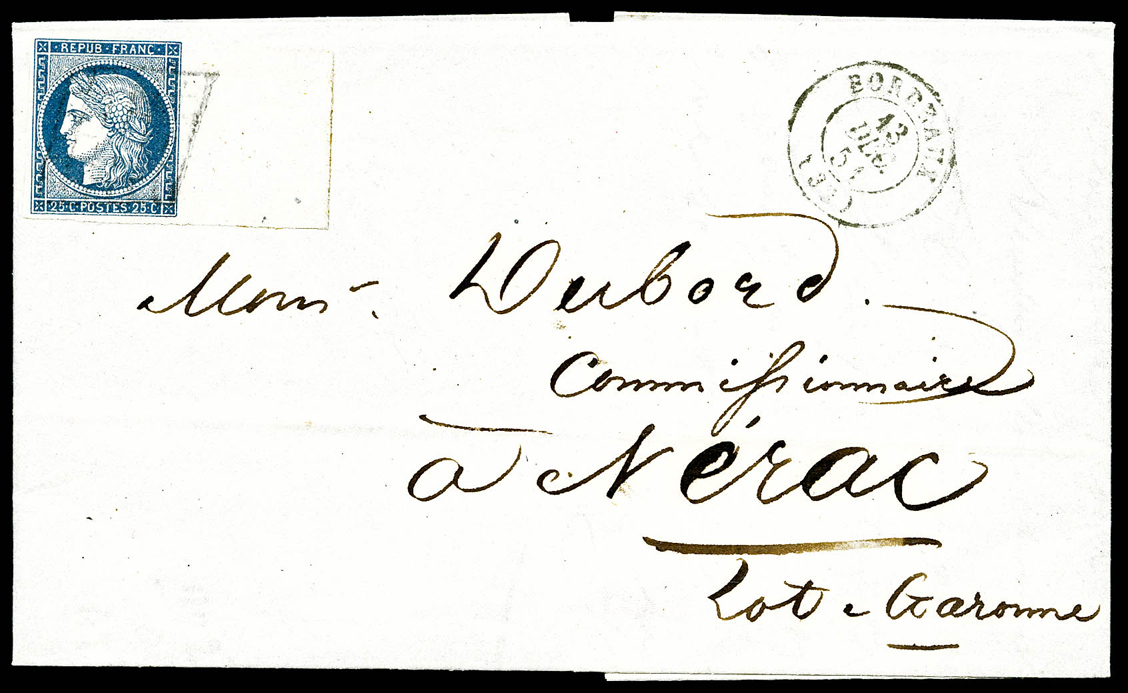 REPUB·FRANC·
25·C·POSTES·25·C·
BORDEAUX
13
DEC.
51
Monsr
Dubord.
Commissionnaire
à Nérac
Lot e Garonne